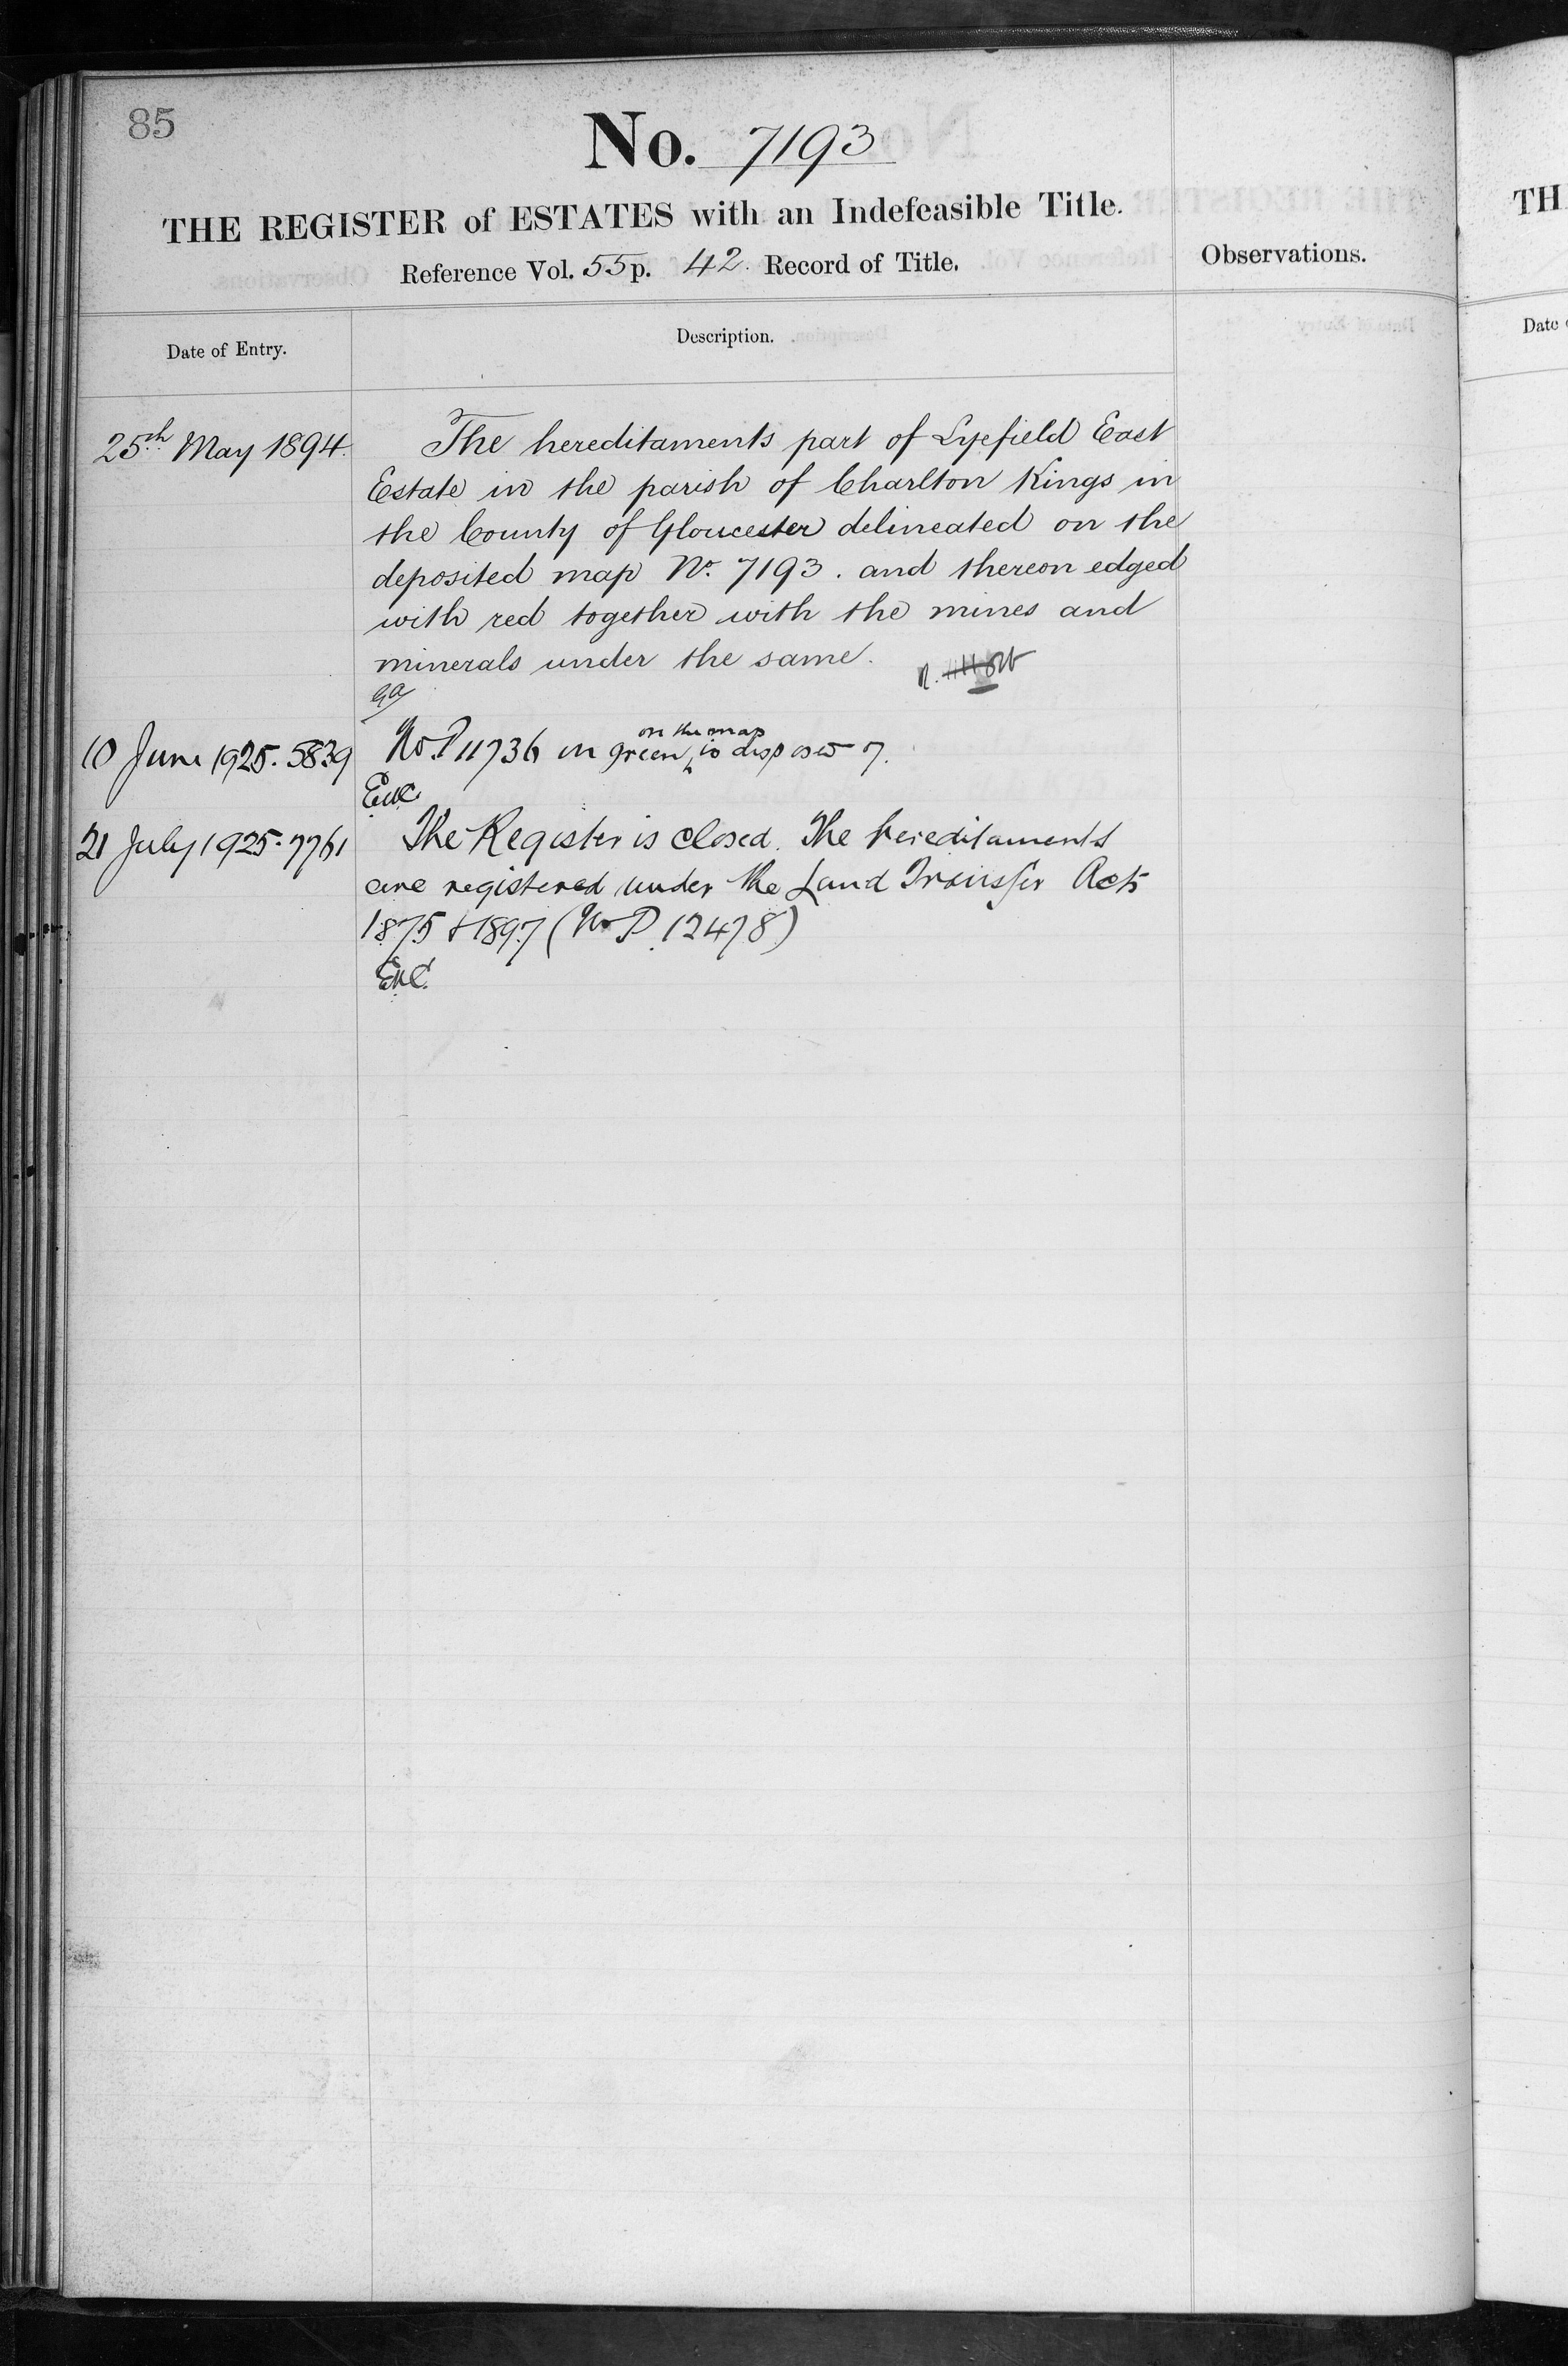 85
No. 7193
THE REGISTER of ESTATES with an Indefeasible Title.
Reference Vol. 55 p. 42. Record of Title.
Observations.
Date of Entry.
Description.
25th May 1894.
The hereditaments part of Lyefield East
Estate in the parish of Charlton Kings in
the County of Gloucester delineated on the
deposited map No. 7193. and thereon edged
with red together with the mines and
minerals under the same.
10 June 1925. 5839
No. P 11736 in green on the map is disposed of.
EWC
21 July 1925. 7761
The Register is closed. The hereditaments
are registered under the Land Transfer Acts
1875 & 1897 (No P 12478)
TH
Date